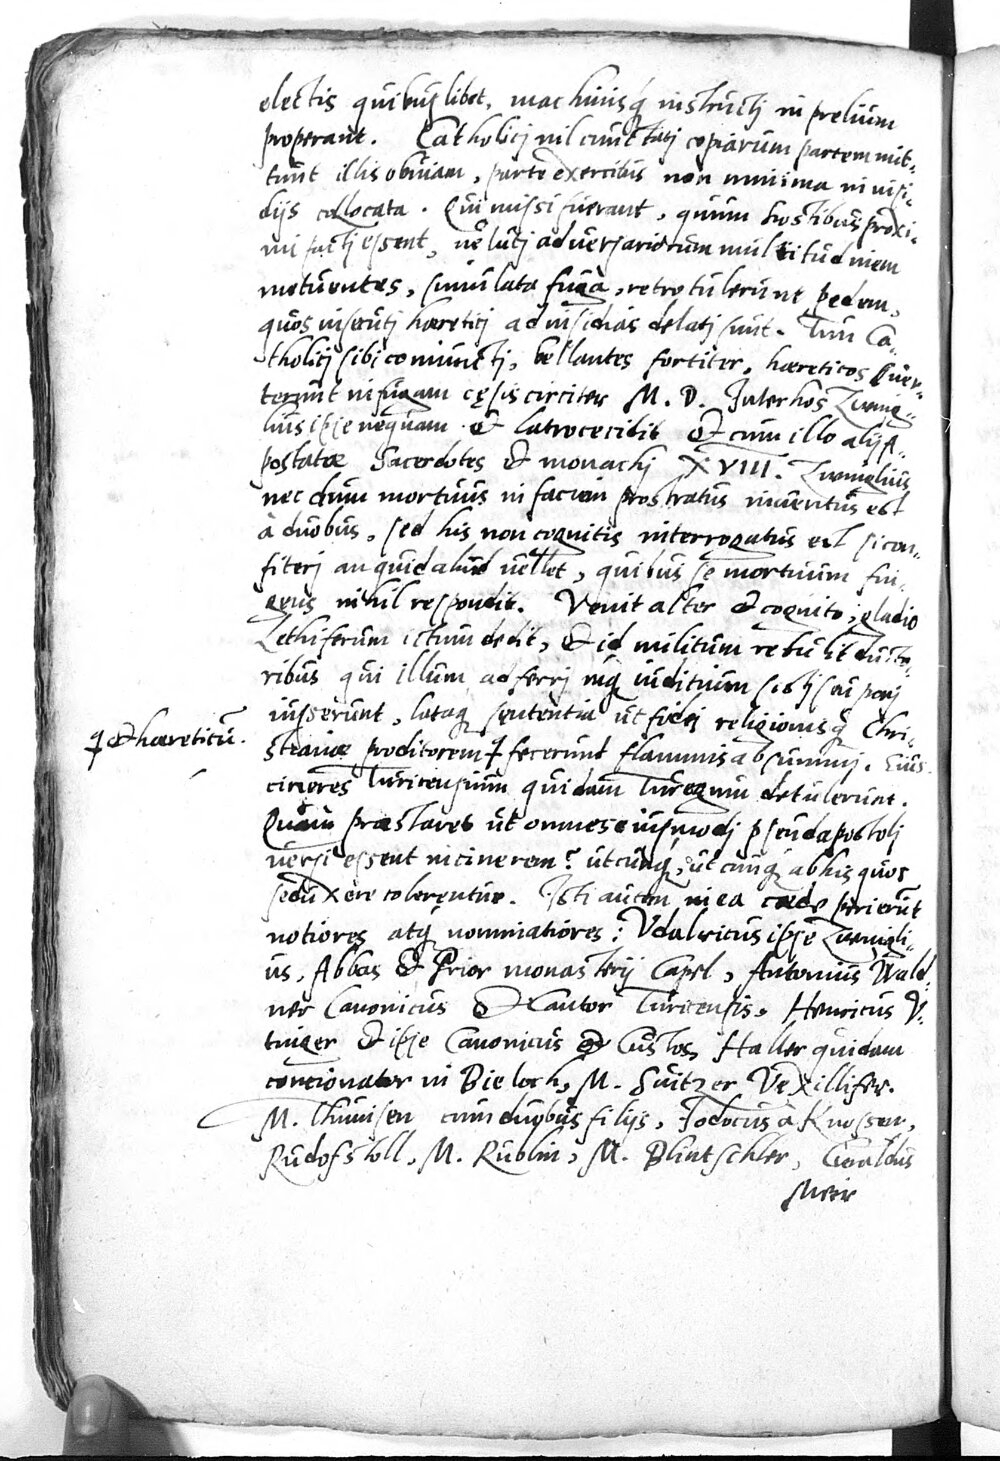 electis quibuslibet, machinisq́ instructj in prelium
properant. Catholicj nil cunctatj copiarum partem mit-
tunt illis obuiam, parte exercitus non minima in insi-
dijs collocata. Qui missi fuerant, quum hostibus proxi-
mi factj essent, uelutj aduersariorum multitudinem
metuentes, simulata fuga, retro tulerunt pedem,
quos insecutj hæreticj ad insidias delatj sunt. Tum Ca-
tholicj sibi coniunctj, bellantes fortiter, hæreticos uer-
terunt in fugam cęsis circiter M. D. Inter hos Zuing-
lius ipse nequam et latro cecidit et cum illo alij A-
postatæ Sacerdotes et monachj XVIII. Zuinglius
nec dum mortuus in faciem prostratus inuentus est
à duobus, sed his non cognitis interrogatus est si con-
fiterj an quid aliud uellet, quibus se mortuum fin-
gens nihil respondit. Venit alter et cognito, gladio
Lethiferum ictum dedit, et id militum retulit ducto-
ribus qui illum adferrj inq́ iuditium sistj
iusserunt, lataq́ sententia ut fidej religionisq́ Chri-
☨ et hæreticū.
stianæ proditorem ☨ fecerunt flammis absummj. Eius
cineres Turicensium quidam Turegum detulerunt.
Quàm præstaret ut omnes eiusmodj pseudapostolj
uersi essent in cinerem? utcunq́, utcunq́ ab his quos
seduxere colerentur. Isti autem in ea cæde perierūt
notiores atq́ nominatiores: Vdalricus ipse Zuingli-
us, Abbas et Prior monasterij Capel, Antonius Wald-
ner Canonicus et Cantor Turicensis, Henricus V-
tinger et ipse Canonicus et Custos, Haller quidam
contionator in Bieloch, M. Suitzer Vexillifer.
M. Thumisen cum duobus filijs, Jodocus à Knossen,
Rudof stoll, M. Rublin, M. Blintschler,
Meir